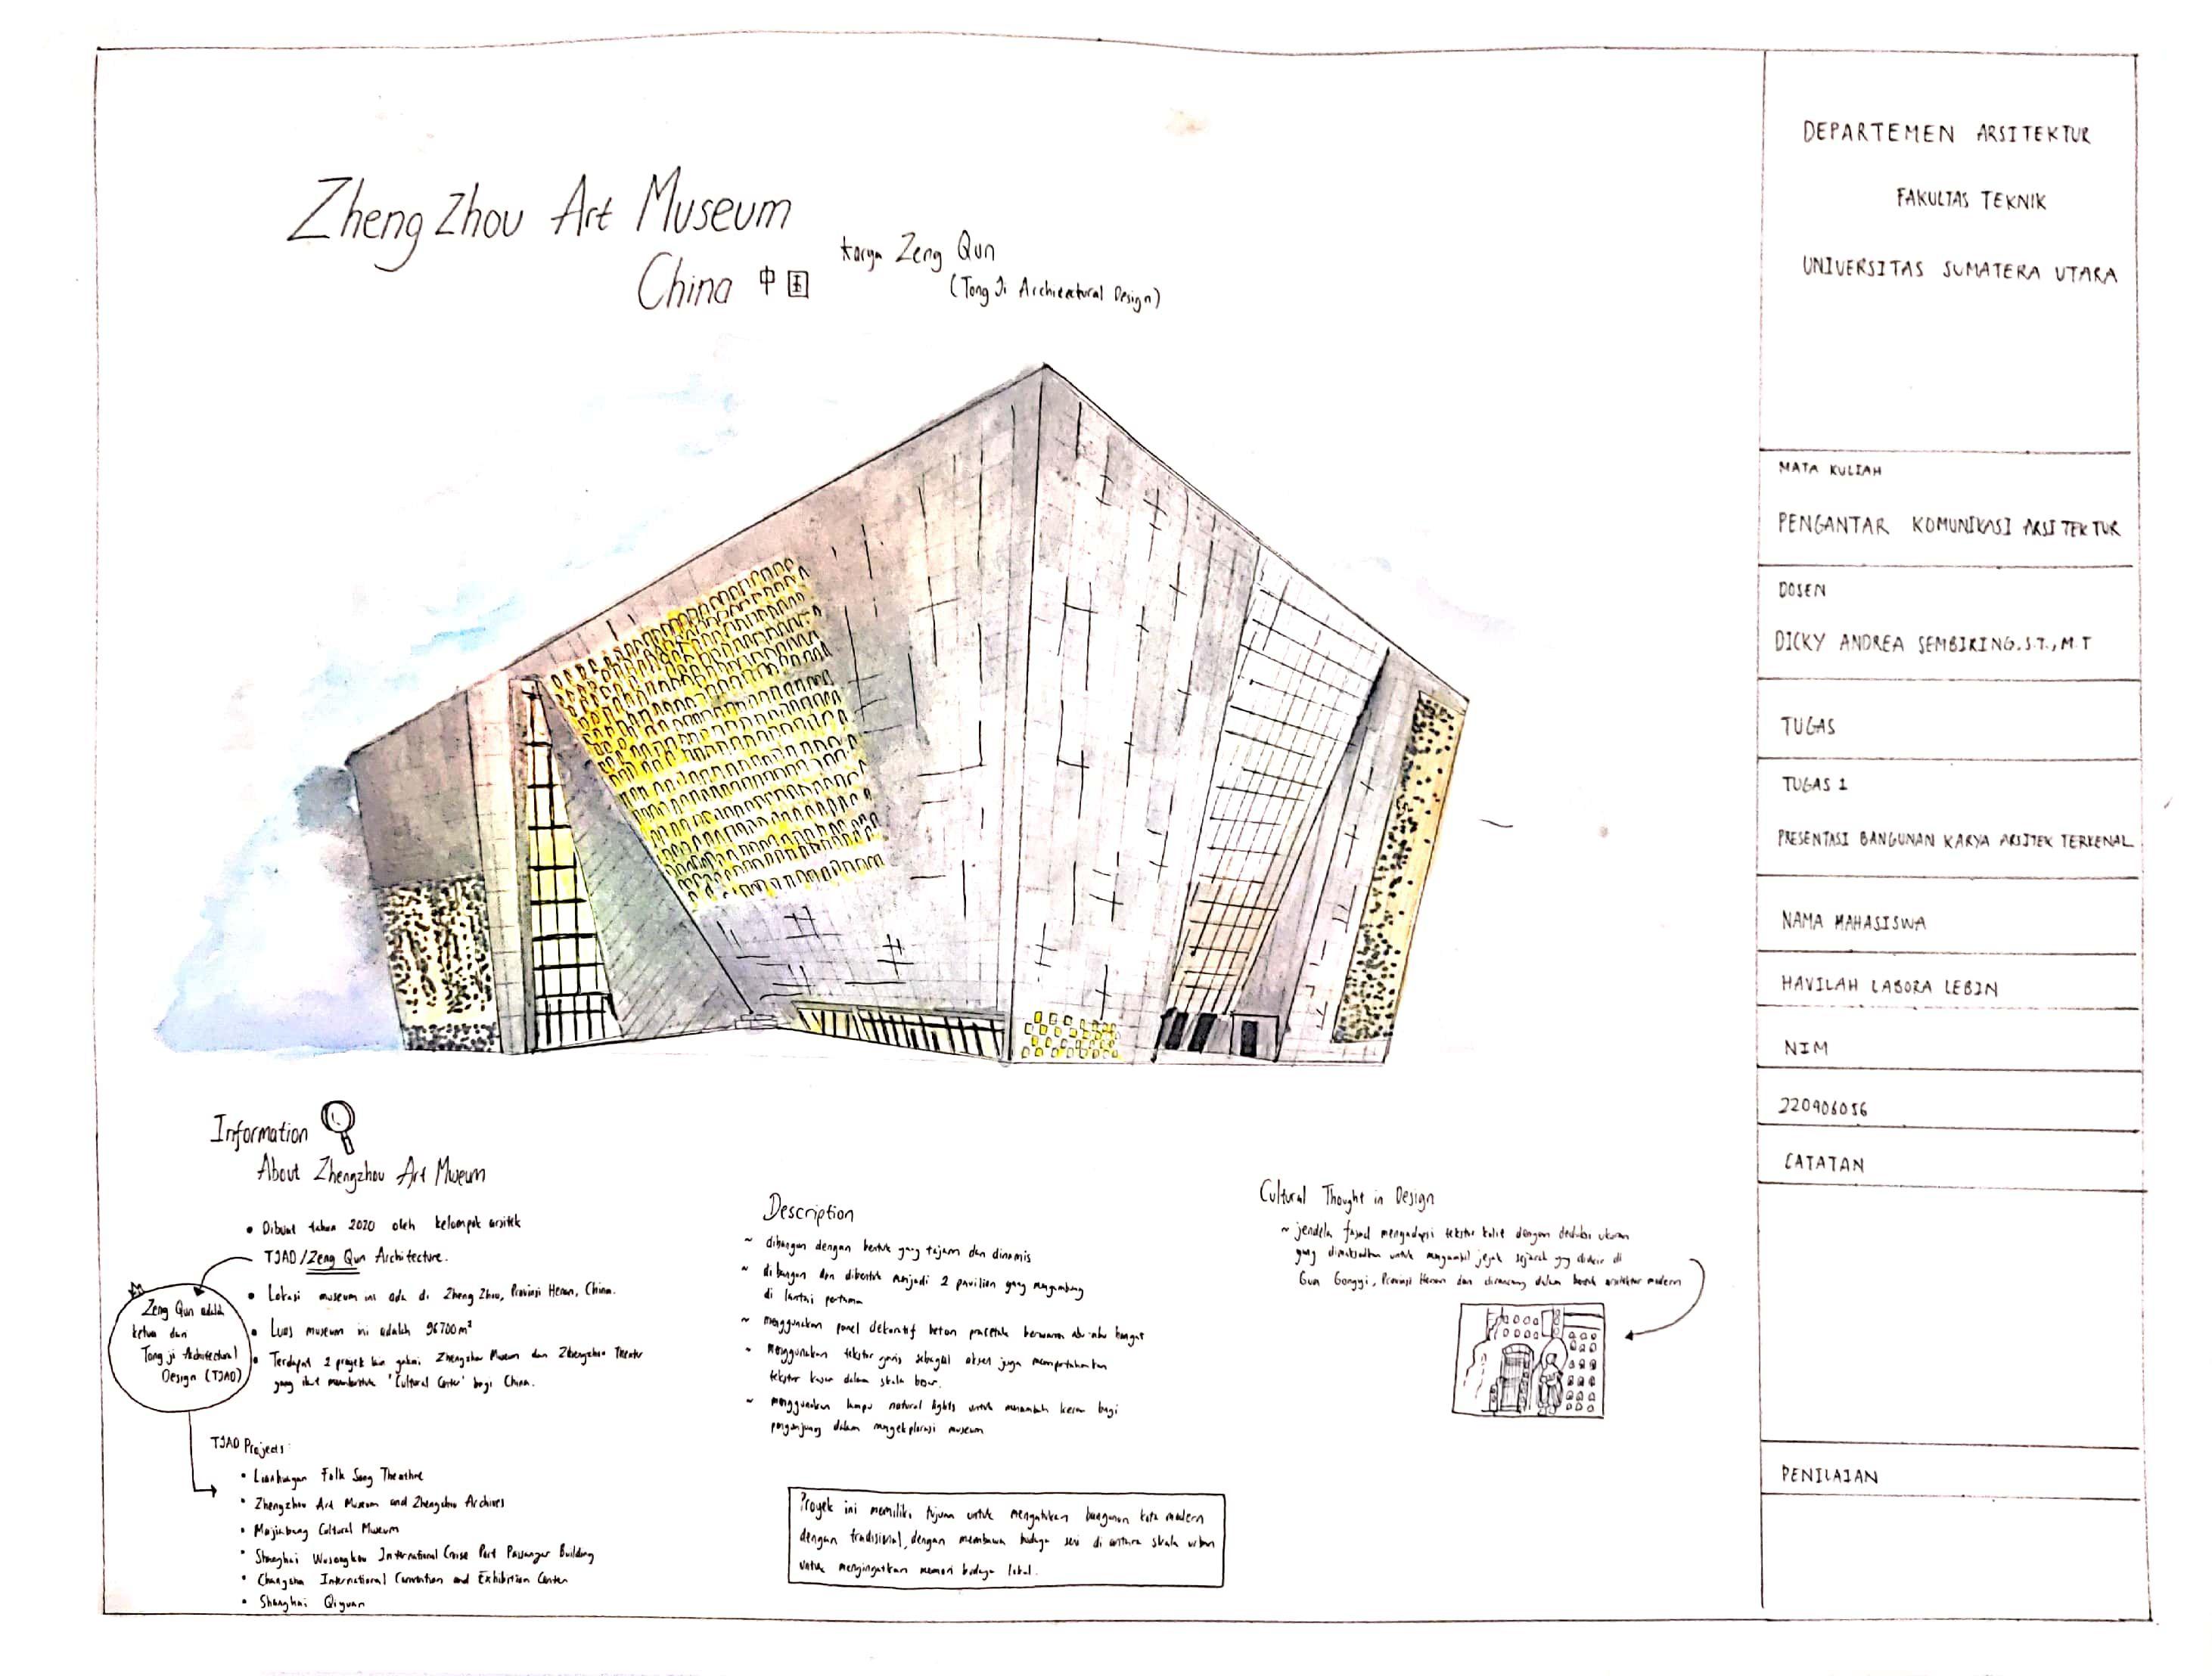 Zheng Zhou Art Museum
China 中国
karya Zeng Qun
(Tong Ji Architectural Design)
Information
About Zhengzhou Art Museum
• Dibuat tahun 2020 oleh kelompok arsitek
TJAD/Zeng Qun Architecture.
• Lokasi museum ini ada di Zheng Zhou, Provinsi Henan, China.
• Luas museum ini adalah 96700m²
• Terdapat 2 proyek lain yakni Zhengzhou Museum dan Zhengzhou Theater
yang ikut membentuk 'Cultural Center' bagi China.
Zeng Qun adalah
ketua dari
Tong ji Architectural
Design (TJAD)
TJAD Projects:
• Lianhuagan Folk Song Theathre
• Zhengzhou Art Museum and Zhengzhou Archives
• Majiabang Cultural Museum
• Shanghai Wusongkou International Cruise Port Passanger Building
• Changsha International Convention and Exhibition Center
• Shanghai Qiyuan
Description
~ dibangun dengan bentuk yang tajam dan dinamis
~ dibangun dan dibentuk menjadi 2 pavilion yang mengambang
di lantai pertama
~ menggunakan panel dekoratif beton pracetak berwarna abu-abu hangat
~ menggunakan tekstur garis sebagai aksen juga mempertahankan
tekstur kasar dalam skala besar.
~ menggunakan lampu natural lights untuk menambah kesan bagi
pengunjung dalam mengeksplorasi museum
Proyek ini memiliki tujuan untuk mengaitkan bangunan kota modern
dengan tradisional, dengan membawa budaya seni di antara skala urban
untuk mengingatkan memori budaya lokal.
Cultural Thought in Design
~ jendela fasad mengadopsi tekstur kulit dengan deduksi ukuran
yang dimaksudkan untuk mengambil jejak sejarah yg diukir di
Gua Gongyi, Provinsi Henan dan dirancang dalam bentuk arsitektur modern
DEPARTEMEN ARSITEKTUR
FAKULTAS TEKNIK
UNIVERSITAS SUMATERA UTARA
MATA KULIAH
PENGANTAR KOMUNIKASI ARSITEKTUR
DOSEN
DICKY ANDREA SEMBIRING.S.T.,M.T
TUGAS
TUGAS 1
PRESENTASI BANGUNAN KARYA ARSITEK TERKENAL
NAMA MAHASISWA
HAVILAH LABORA LEBIN
NIM
220406056
CATATAN
PENILAIAN